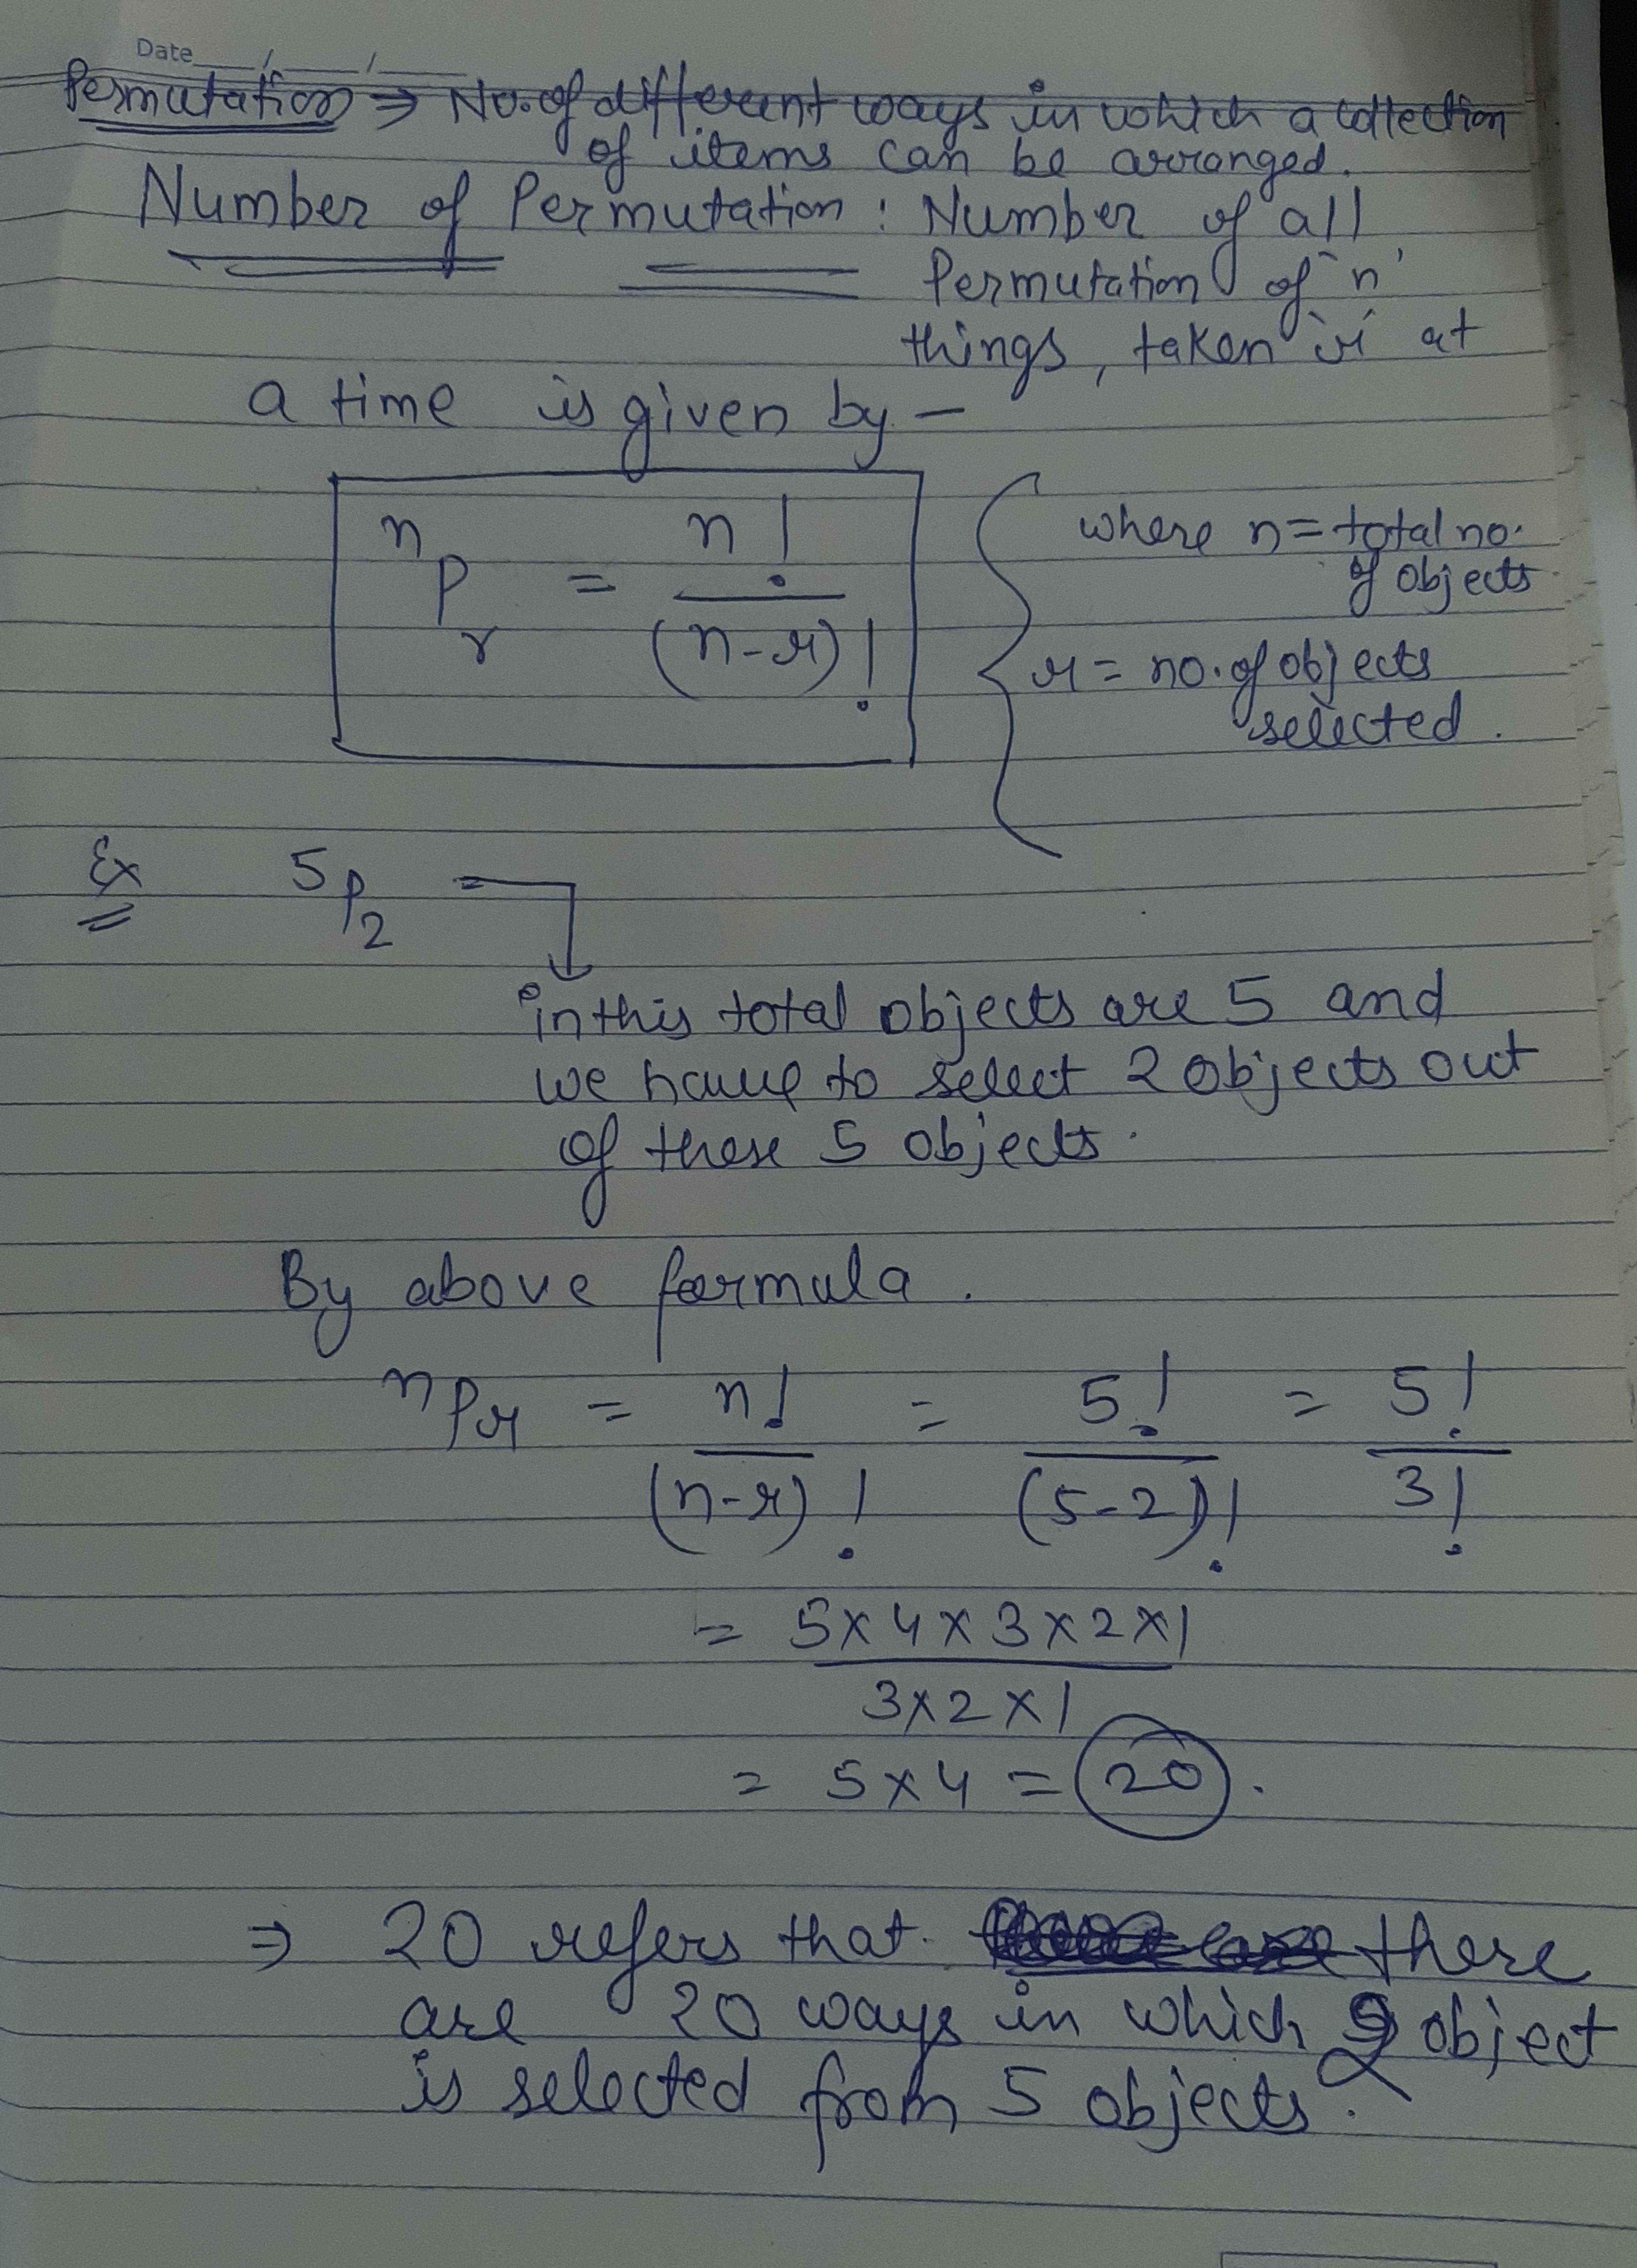 Date __/__/__
Permutation ⇒ No. of different ways in which a collection
of items can be arranged.
Number of Permutation : Number of all
Permutation of 'n'
things, taken 'r' at
a time is given by –
ⁿPᵣ = n! / (n-r)!
where n = total no.
of objects
r = no. of objects
selected.
Ex 5P2 =
in this total objects are 5 and
we have to select 2 objects out
of these 5 objects.
By above formula.
nPr = n! / (n-r)! = 5! / (5-2)! = 5! / 3!
= 5×4×3×2×1 / 3×2×1
= 5×4 = 20.
⇒ 20 refers that there
are 20 ways in which 2 object
is selected from 5 objects.